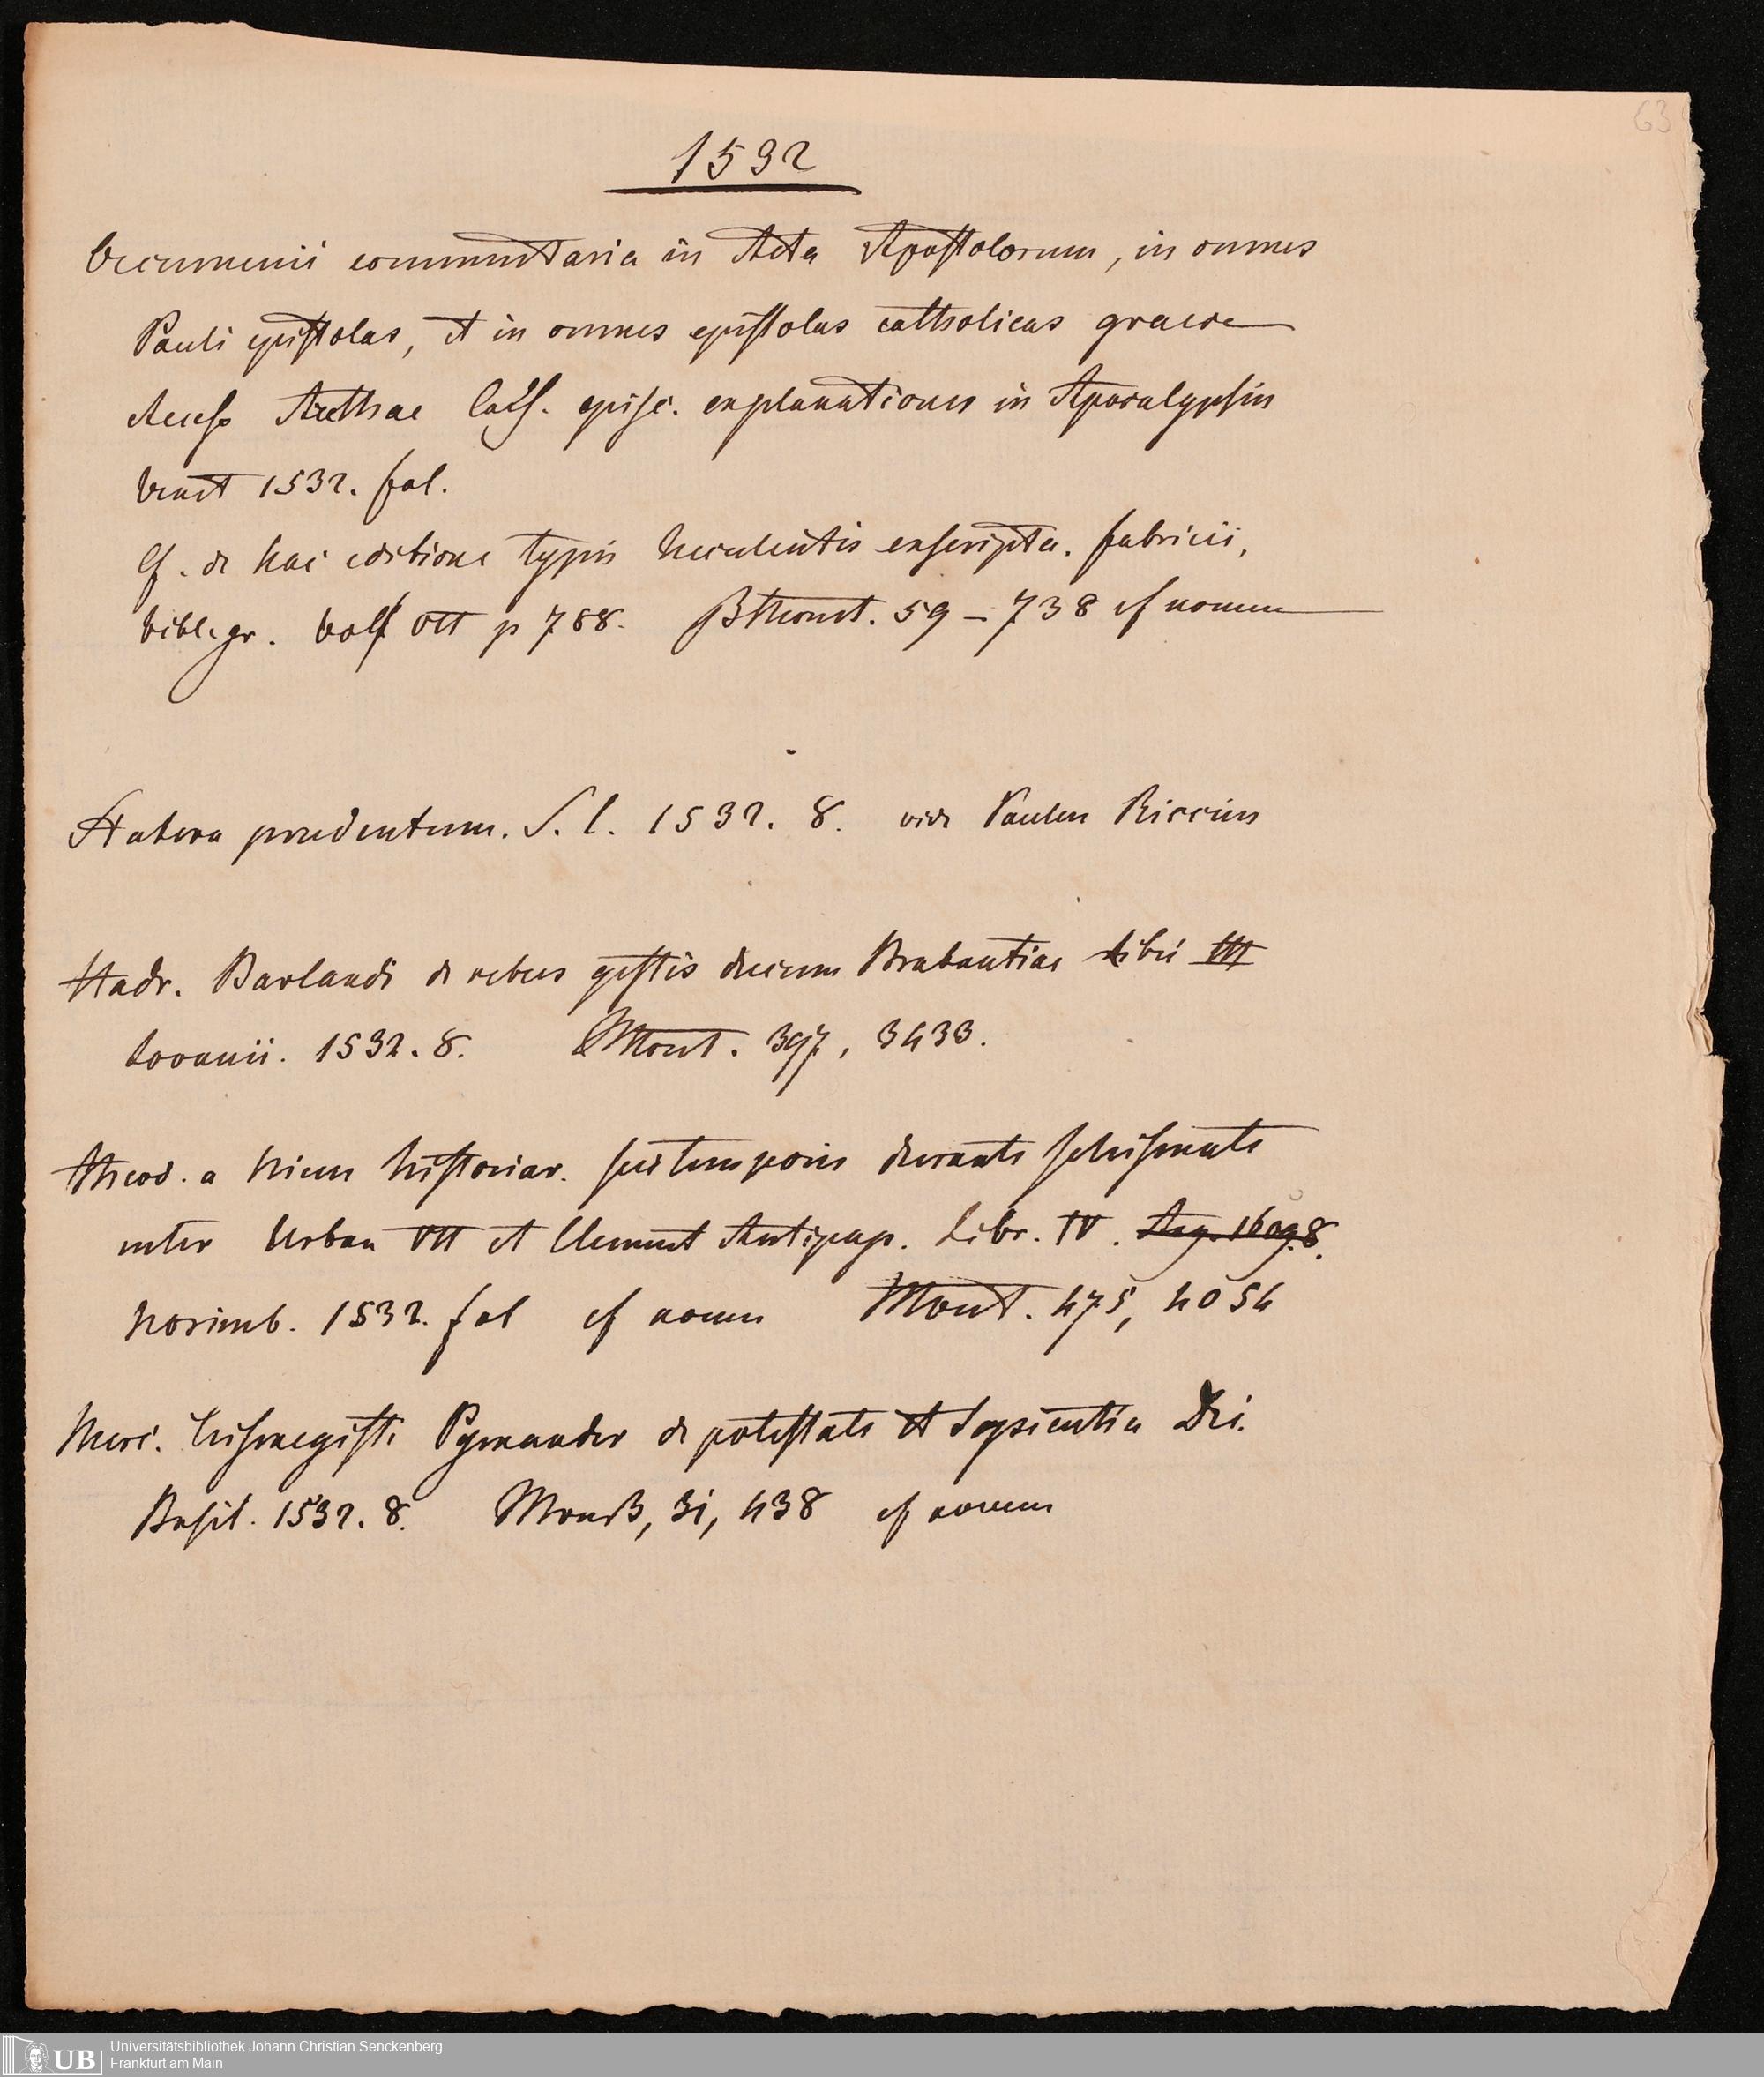 63
1532
Oecumenii commentaria in Acta Apostolorum, in omnes
Pauli epistolas, et in omnes epistolas catholicas graece
Access Arethae Caes. episc. explanationes in Apocalypsin
Venet 1532. fol.
Cf. de hac editione typis luculentis exscripta. Fabricii,
bibl. gr. Vol VII p 788. BThomt. 59 – 738 cf nomen
Statera prudentum. S. l. 1532. 8. vide Paulus Riccius
Hadr. Barlandi de rebus gestis ducum Brabantiae libri III
Lovanii. 1532. 8. Mont. 397, 3433.
Theod. a Niem historiar. sui temporis durante schismate
inter Urban VII et Clement Antipap. Libr. IV. Arg. 1609. 8.
Norimb. 1532. fol cf nomen Mont. 475, 4054
Merc. Trismegisti Pymander de potestate et Sapientia Dei.
Basil. 1532. 8. 31, 438 cf nomen
UB
Universitätsbibliothek Johann Christian Senckenberg
Frankfurt am Main